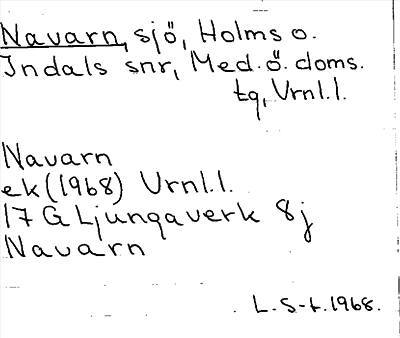 Navarn, sjö, Holms o.
Indals snr, Med. ö. doms.
tg, Vrnl.l.
Navarn
ek (1968) Vrnl.l.
17 G Ljungaverk 8j
Navarn
L. S-t. 1968.